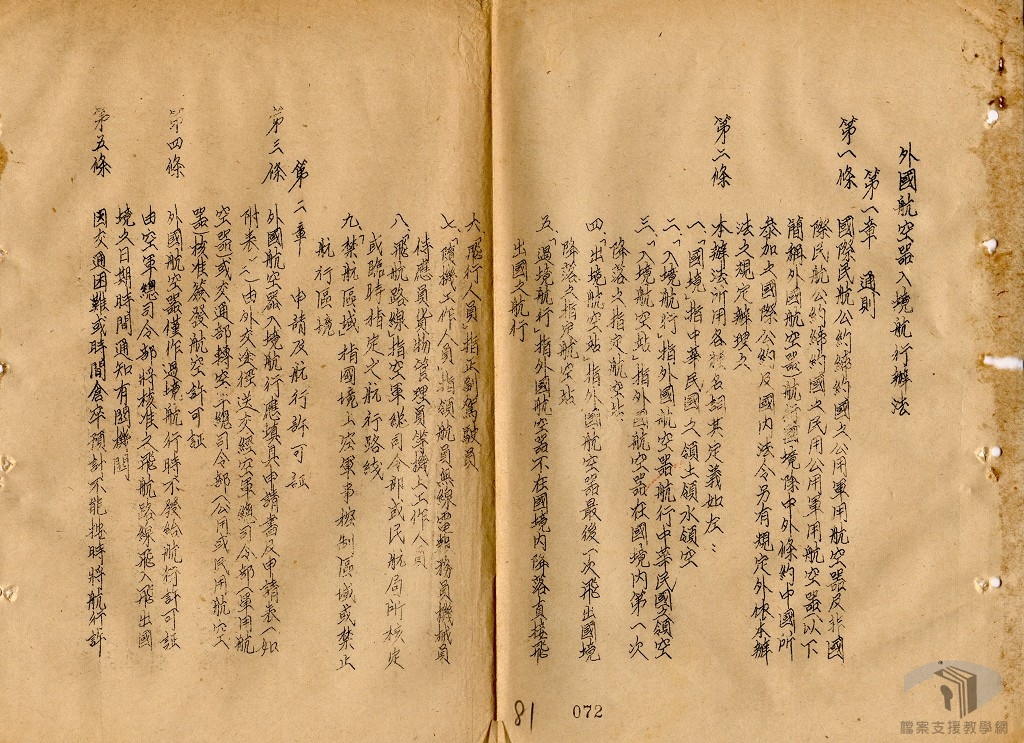 外國航空器入境航行辦法
第一章　通則
第一條
國際民航公約締約國之公用軍用航空器及非國
際民航公約締約國之民用公用軍用航空器(以下
簡稱外國航空器)航行國境除中外條約中國所
參加之國際公約及國內法令另有規定外依本辦
法之規定辦理之
第二條
本辦法所用各種名詞其定義如左：
一、「國境」指中華民國之領土領水領空
二、「入境航行」指外國航空器航行中華民國之領空
三、「入境航空站」指外國航空器在國境內第一次
降落之指定航空站
四、「出境航空站」指外國航空器最後一次飛出國境
降落之指定航空站
五、「過境航行」指外國航空器不在國境內降落直接飛
出國之航行
六、「飛行人員」指正副駕駛員
七、「隨機工作人員」指領航員無線電報務員機械員
侍應員貨物管理員等機上工作人員
八、「飛航路線」指空軍總司令部或民航局所核定
或臨時指定之航行路綫
九、「禁航區域」指國境上空軍事控制區域或禁止
航行區境
第二章　申請及航行許可証
第三條
外國航空器入境航行應填具申請書及申請表(如
附表一)由外交途徑送交經空軍總司令部(軍用航
空器)或交通部轉空軍總司令部(公用或民用航空
器)核准簽發航空許可証
第四條
外國航空器僅作過境航行時不發給航行許可証
由空軍總司令部將核准之飛航路線飛入飛出國
境之日期時間通知有関機関
第五條
因交通困難或時間倉卒預計不能按時將航行許
81
072
檔案支援教學網